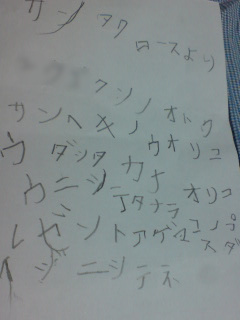 サン タク
ロースより
ケンノ
サンヘ キノ オトク
ウ ダシタ ウオリコ
ウニシ カナ
テタナラ オリコ
レゼントアゲマス
コノプ
ダ
イジニシテネ